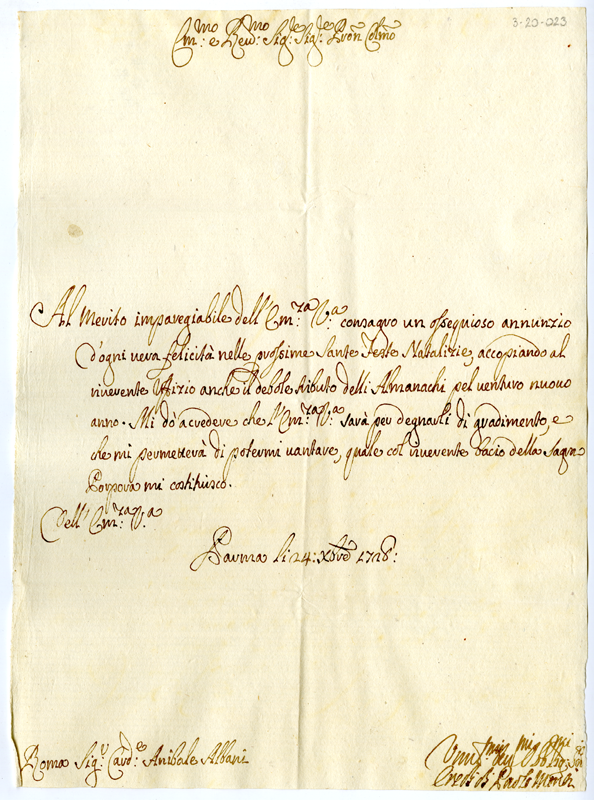 3-20-023
Em:mo e Reu:mo Sig:re Sig:re Pron Colmo
Al Merito impareggiabile dell'Em:za V:a consagro un ossequioso annunzio
d'ogni vera felicità nelle prossime Sante Feste Natalizie, accopiando al
riverente Ufizio anche il debole tributo delli Almanachi pel venturo nuovo
anno. Mi dò a credere che l'Em:za V:a sarà per degnarli di gradimento, e
che mi permetterà di potermi vantare, quale col riverente bacio della Sagra
Porpora mi costituisco.
Dell'Em:za V:a
Parma li 24: Xbre 1718:
Roma Sig:r Card:e Anibale Albani
Eredi di Paolo Monti